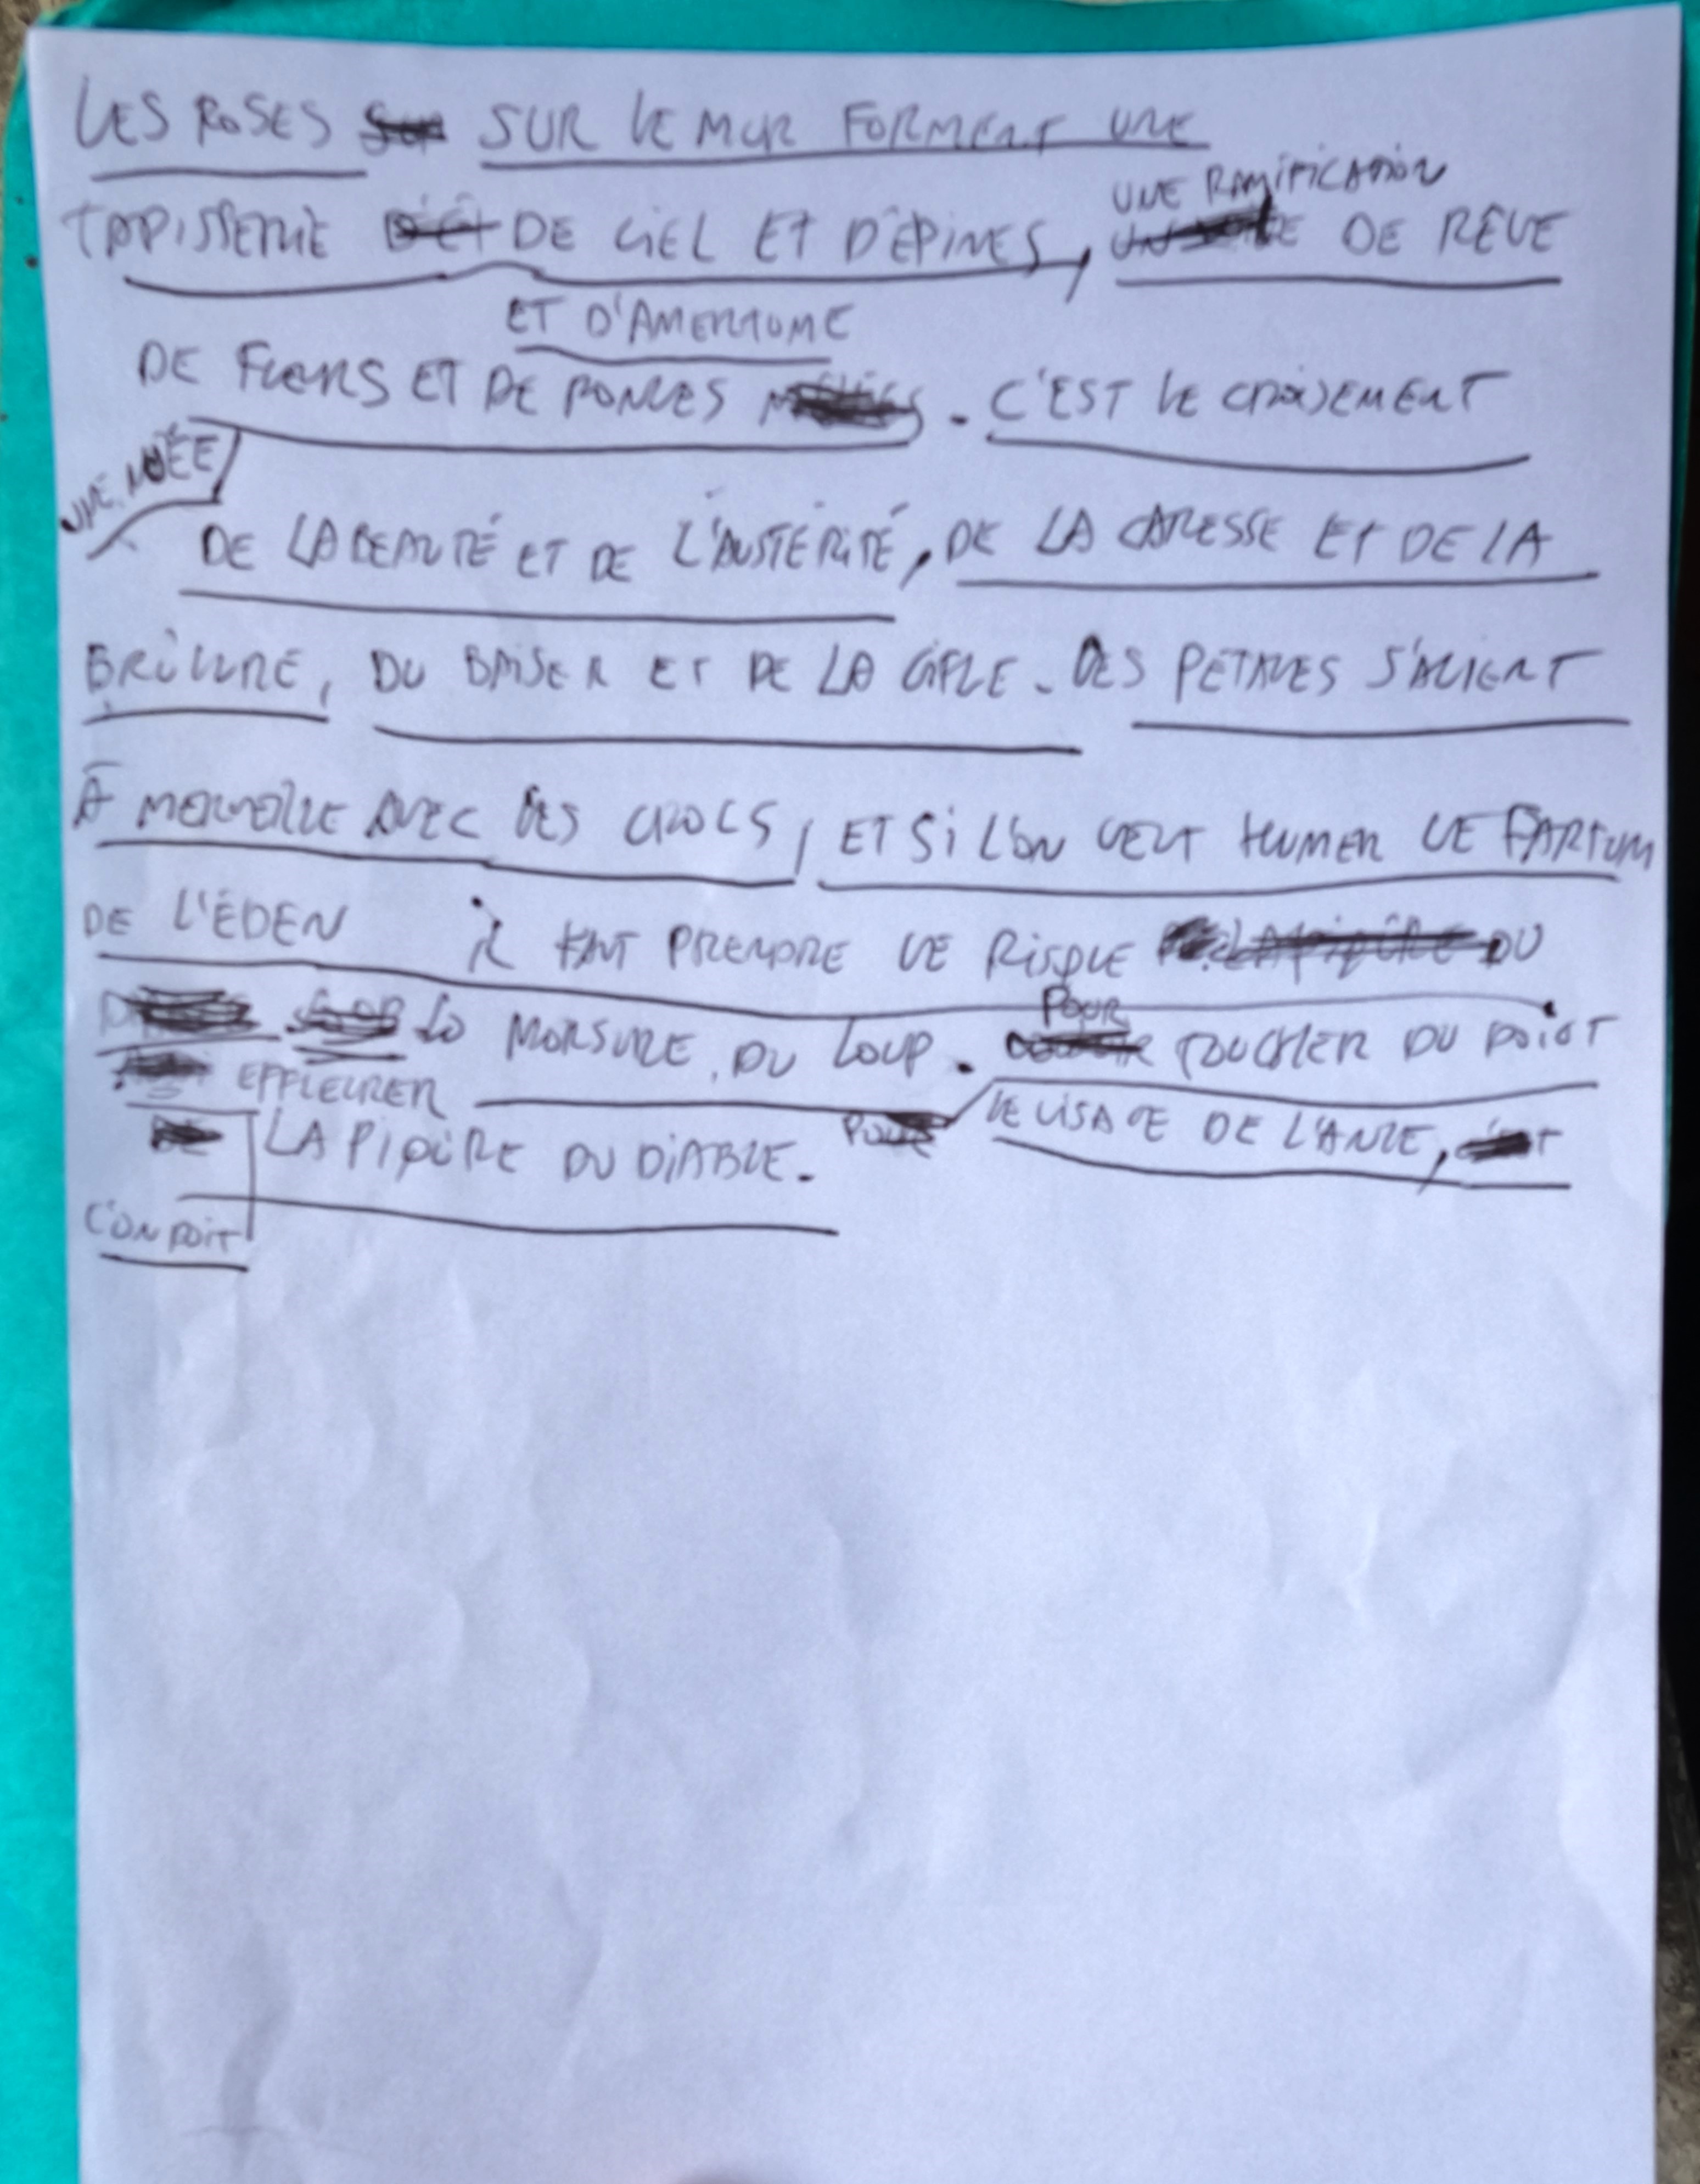 LES ROSES SUR LE MUR FORMENT UNE
UNE RAMIFICATION
TAPISSERIE DE CIEL ET D'ÉPINES, DE RÊVE
ET D'AMERTUME
DE FLEURS ET DE RONCES . C'EST LE CROISEMENT
UNE NUÉE
DE LA BEAUTÉ ET DE L'AUSTÉRITÉ, DE LA CARESSE ET DE LA
BRÛLURE, DU BAISER ET DE LA GIFLE. DES PÉTALES S'ALIENT
À MERVEILLE AVEC DES CROCS, ET SI L'ON VEUT HUMER LE PARFUM
DE L'ÉDEN IL FAUT PRENDRE LE RISQUE DU
POUR
LA MORSURE DU LOUP. TOUCHER DU DOIGT
EFFLEURER
LE VISAGE DE L'ANGE,
LA PIQÛRE DU DIABLE.
L'ON DOIT